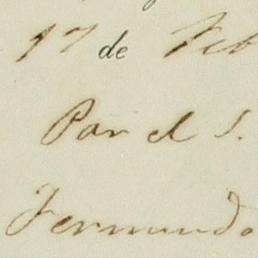 17 de Feb
Por el S.
Fernando